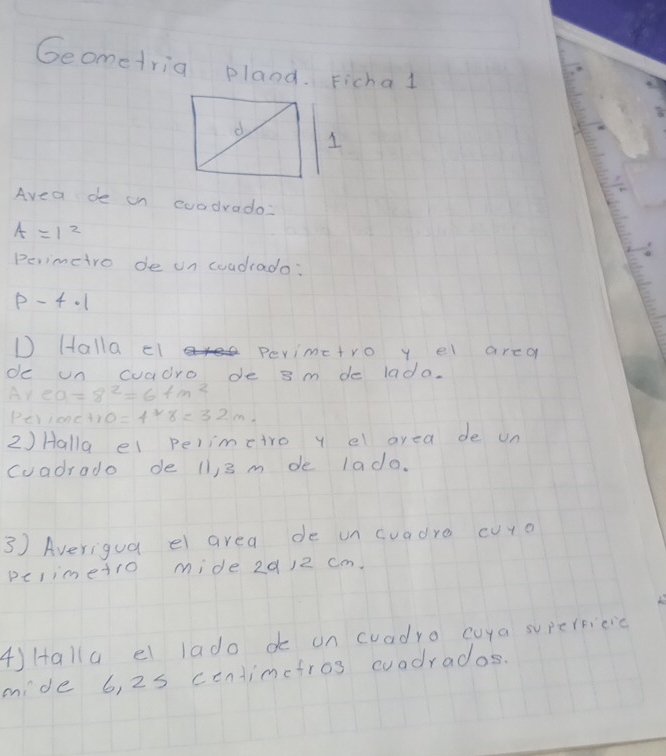 Geometria pland. Ficha 1
d
1
Area de un cuadrado:
A = l²
Perimetro de un cuadrado:
P - 4 . l
1) Halla el perimetro y el area
de un cuadro de 8 m de lado.
Area = 8² = 64m²
Perimetro = 4*8 = 32m.
2) Halla el perimetro y el area de un
cuadrado de 11,3 m de lado.
3) Averigua el area de un cuadro cuyo
perimetro mide 29,12 cm.
4) Halla el lado de un cuadro cuya superficie
mide 6,25 centimetros cuadrados.